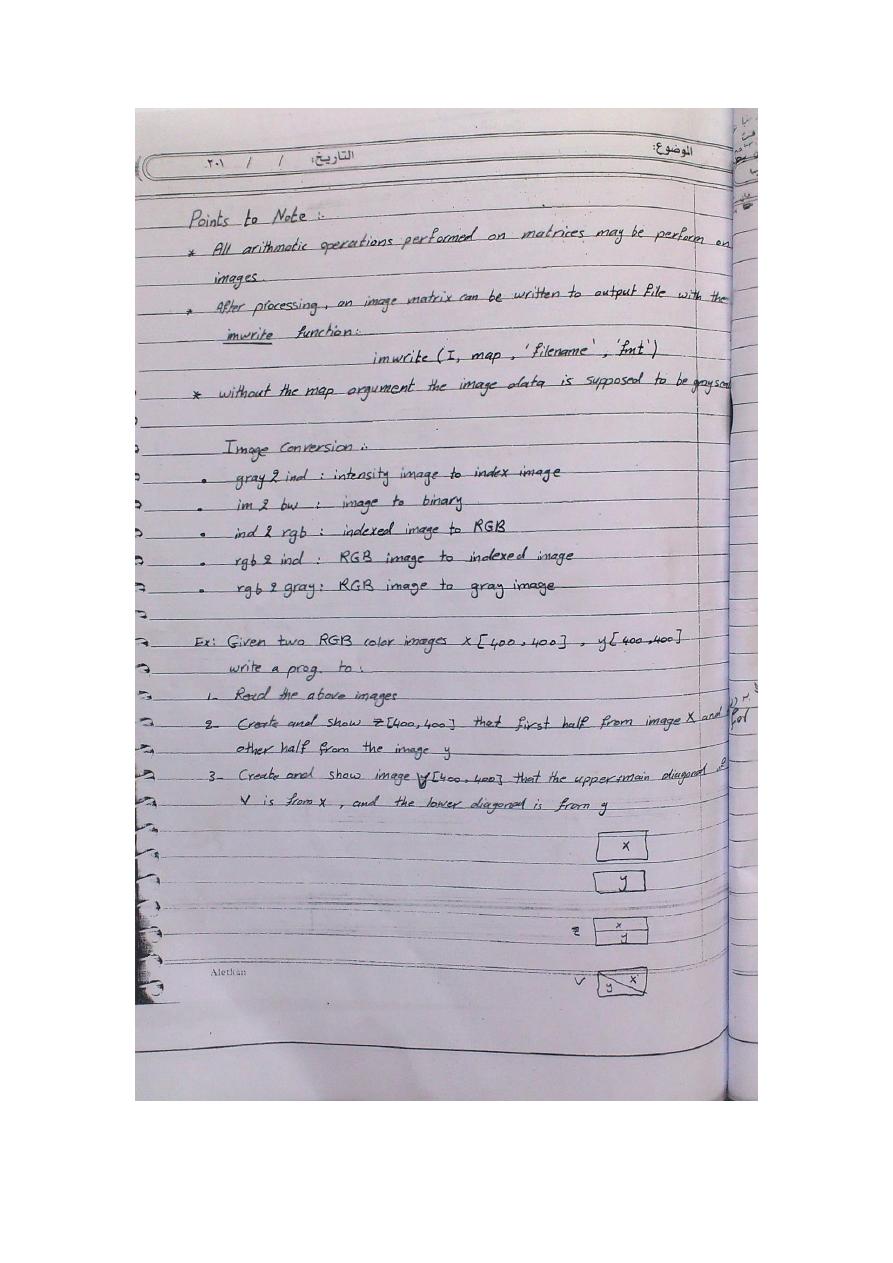 الموضوع: التاريخ: / / ٢٠١
Points to Note :.
* All arithmatic operations performed on matrices may be perform on
images.
* After processing, an image matrix can be written to output file with the
imwrite function:
imwrite (I, map , 'filename' , 'fmt')
* without the map argument the image data is supposed to be grayscal
Image Conversion :.
• gray 2 ind : intensity image to index image
• im 2 bw : image to binary
• ind 2 rgb : indexed image to RGB
• rgb 2 ind : RGB image to indexed image
• rgb 2 gray : RGB image to gray image
Ex: Given two RGB color images X [400,400] , y[400,400]
write a prog. to :
1- Read the above images
2- Create and show z[400,400] that first half from image X and
other half from the image y
3- Create and show image V[400,400] that the upper main diagonal of
V is from x , and the lower diagonal is from y
x
y
z x
y
v y x
Alethan